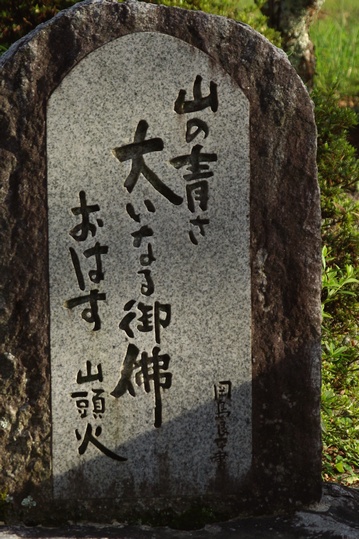 山の青さ
大いなる御佛
おはす
山頭火